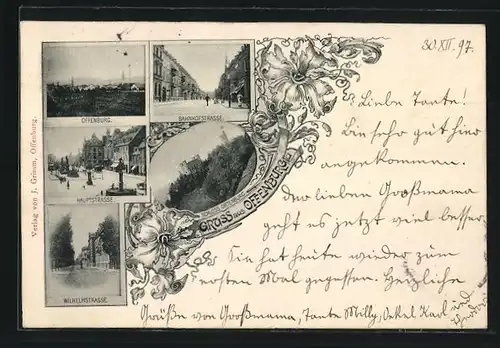 30. XII. 97.
OFFENBURG.
BAHNHOFSTRASSE.
HAUPTSTRASSE
WILHELMSTRASSE.
GRUSS AUS OFFENBURG
Verlag von J. Grimm, Offenburg.
Liebe Tante!
Bin sehr gut hier
angekommen.
Der lieben Großmama
geht es jetzt viel besser
Sie hat heute wieder zum
ersten Mal gegessen. Herzliche
Grüße von Großmama, Tante Milly, Onkel Karl und